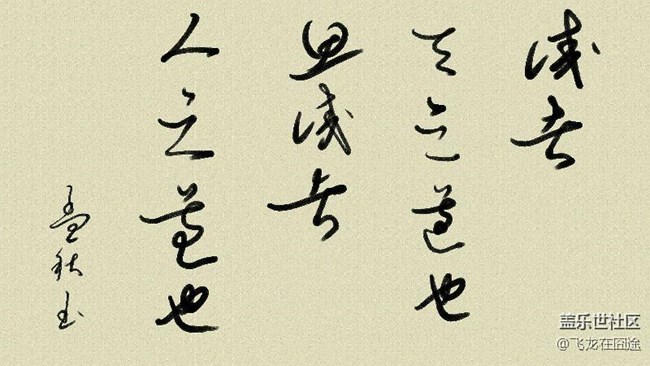 诚者
天之道也
思诚者
人之道也
孟秋书
盖乐世社区
@飞龙在囧途